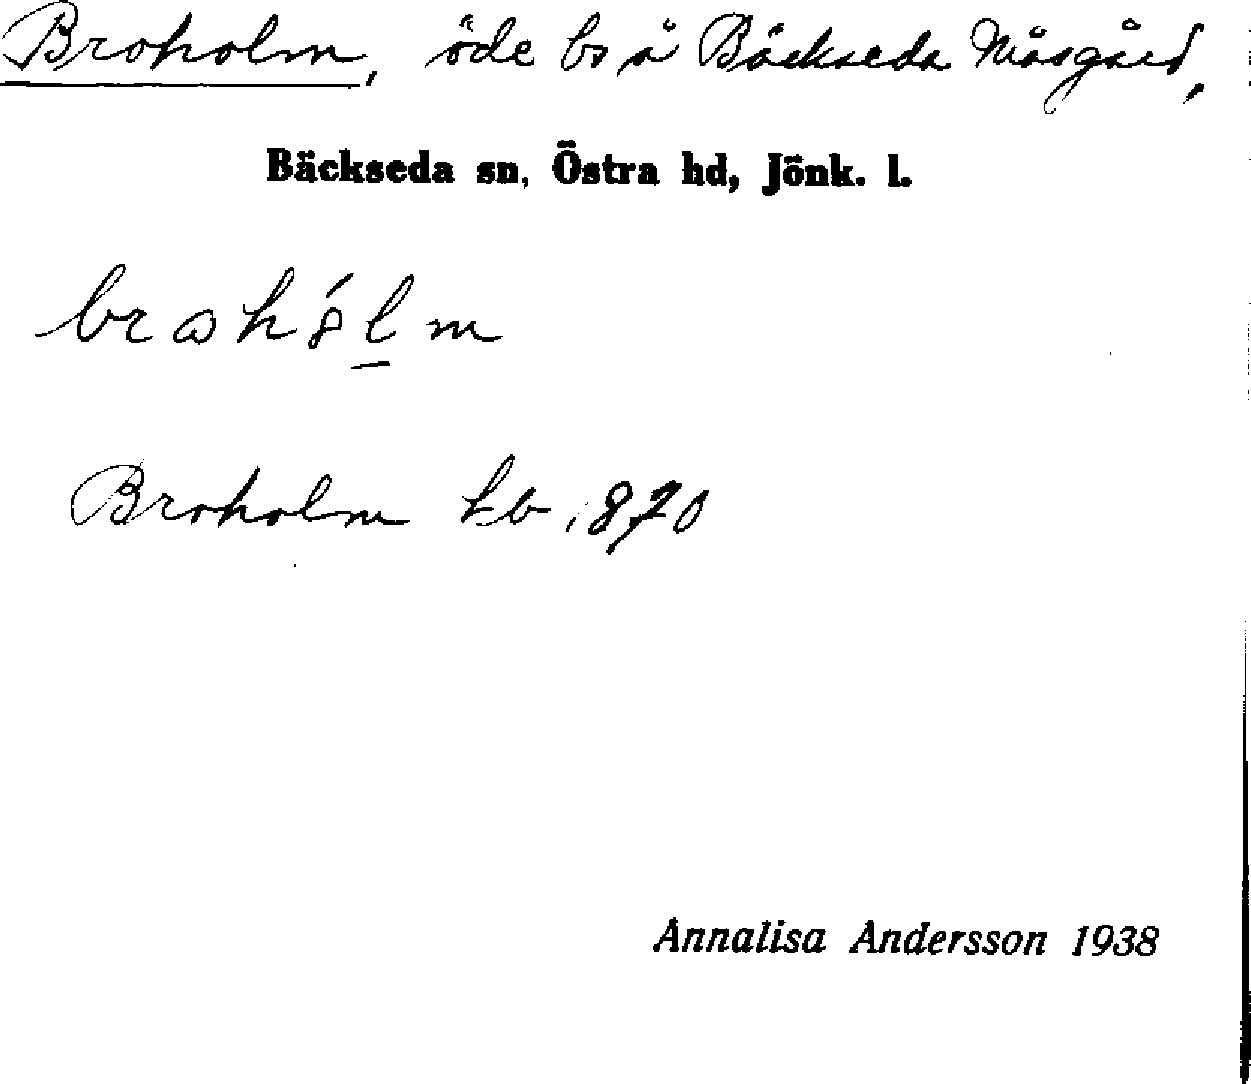 Broholm, öde bs å Bäckseda Måsgård,
Bäckseda sn, Östra hd, Jönk. l.
Broholm hb 1870
Annalisa Andersson 1938